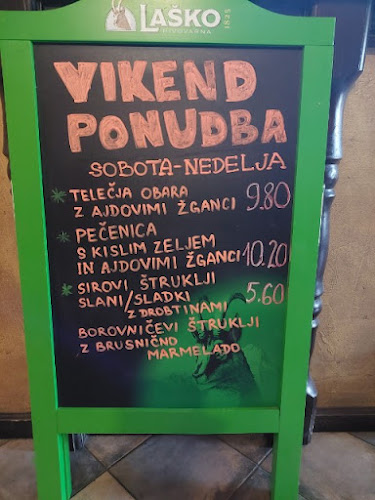 LAŠKO
PIVOVARNA
1825
VIKEND
PONUDBA
SOBOTA-NEDELJA
* TELEČJA OBARA
Z AJDOVIMI ŽGANCI 9.80
* PEČENICA
S KISLIM ZELJEM
IN AJDOVIMI ŽGANCI 10.20
* SIROVI ŠTRUKLJI
SLANI/SLADKI 5.60
Z DROBTINAMI
BOROVNIČEVI ŠTRUKLJI
Z BRUSNIČNO
MARMELADO